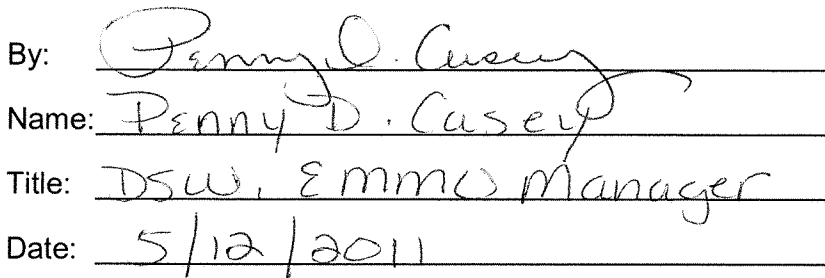 By: Penny D. Casey
Name: Penny D. Casey
Title: DSW, EMMO Manager
Date: 5/12/2011